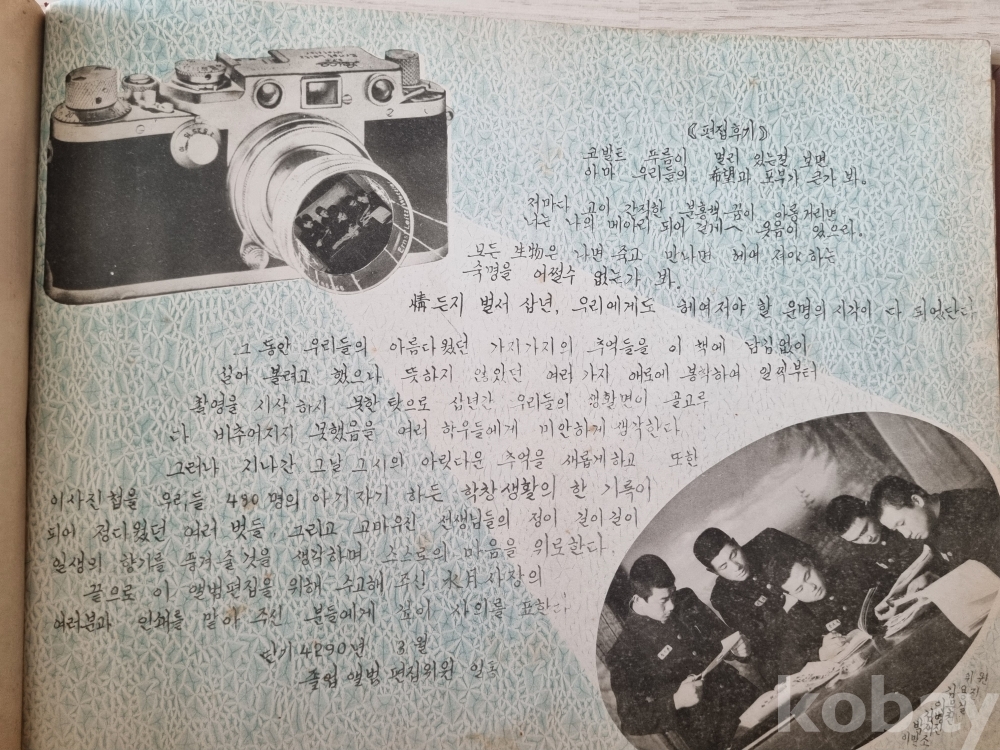 《편집후기》
코발트 푸름이 멀리 있는걸 보면
아마 우리들의 希望과 포부가 큰가 봐.
저마다 고이 간직한 분홍색 꿈이 아롱거리면
너는 나의 메아리 되어 길게— 웃음이 있으라.
모든 生物은 나면 죽고 만나면 헤여져야 하는
숙명을 어쩔수 없는가 봐.
情든지 벌서 삼년, 우리에게도 헤여져야 할 운명의 시각이 다 되었단다.
그 동안 우리들의 아름다웠던 가지가지의 추억들을 이 책에 남김없이
실어 볼려고 했으나 뜻하지 않았던 여러가지 애로에 봉착하여 일찍부터
촬영을 시작하지 못한 탓으로 삼년간 우리들의 생활면이 골고루
다 비추어지지 못했음을 여러 학우들에게 미안하게 생각한다.
그러나 지나간 그날 그시의 아릿다운 추억을 새롭게하고 또한
이사진첩을 우리들 480명의 아기자기 하든 학창생활의 한 기록이
되어 정다웠던 여러 벗들 그리고 고마우신 선생님들의 정이 길이길이
일생의 향기를 풍겨줄것을 생각하며 스스로의 마음을 위로한다.
끝으로 이 앨범편집을 위해 수고해 주신 水月사장의
여러분과 인쇄를 맡아 주신 분들에게 깊이 사의를 표한다.
단기4290년 3월
졸업 앨범 편집위원 일동
위원
kobay